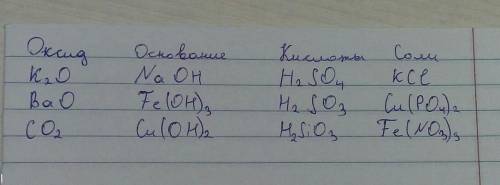 Оксид Основание Кислоты Соли
K₂O NaOH H₂SO₄ KCl
BaO Fe(OH)₃ H₂SO₃ Cu(PO₄)₂
CO₂ Cu(OH)₂ H₂SiO₃ Fe(NO₃)₃